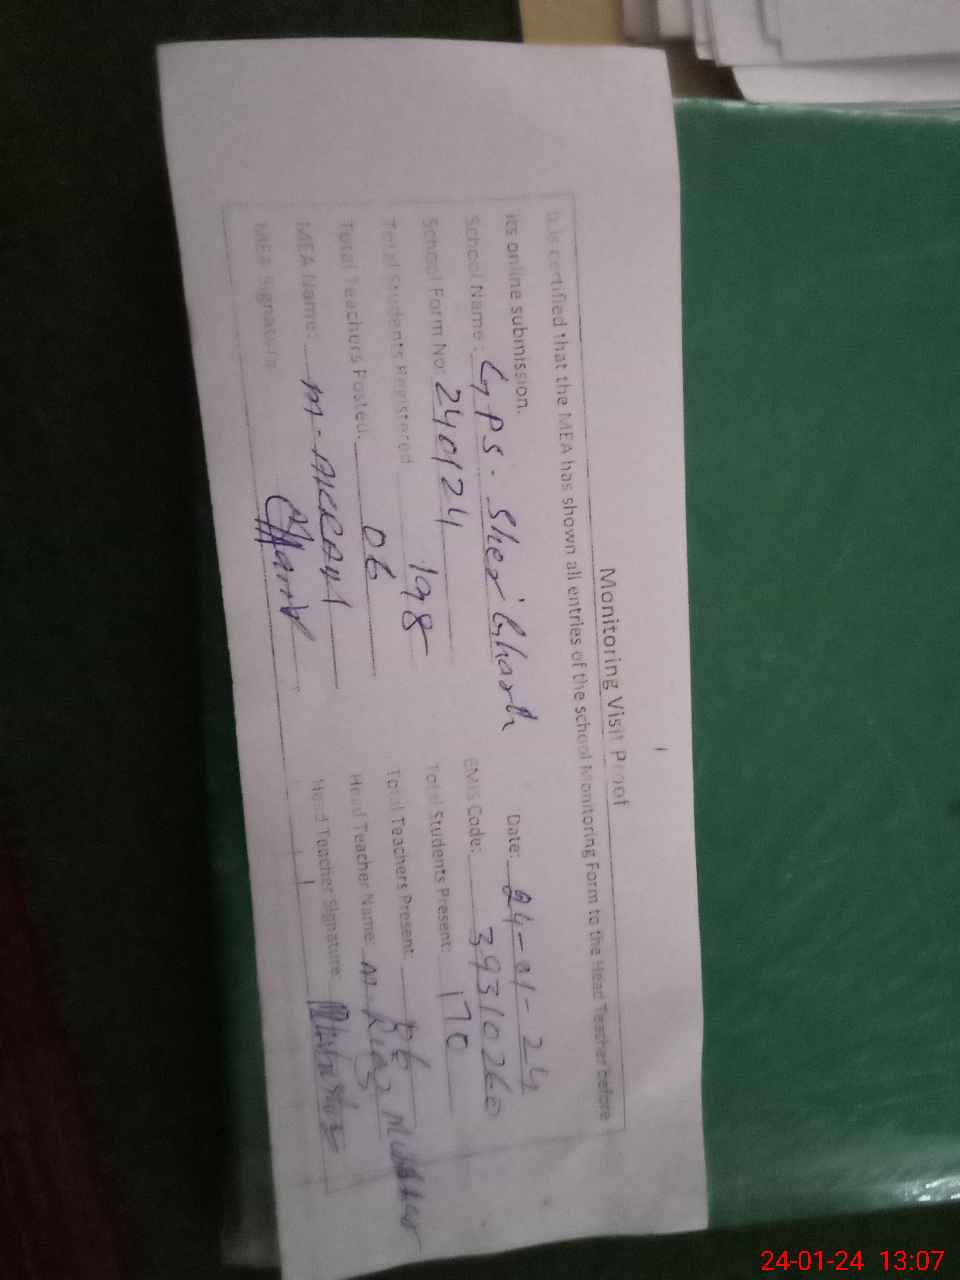 Monitoring Visit Proof
It is certified that the MEA has shown all entries of the school Monitoring Form to the Head Teacher before
its online submission.
Date: 24-01-24
School Name: GPS. Sher Gharh
EMIS Code: 39310260
School Form No: 240124
Total Students Present: 170
Total Students Registered 198
Total Teachers Present: 06
Total Teachers Posted: 06
Head Teacher Name: M. Riaz
MEA Name: M. Akram
Head Teacher Signature:
MEA Signature
24-01-24 13:07